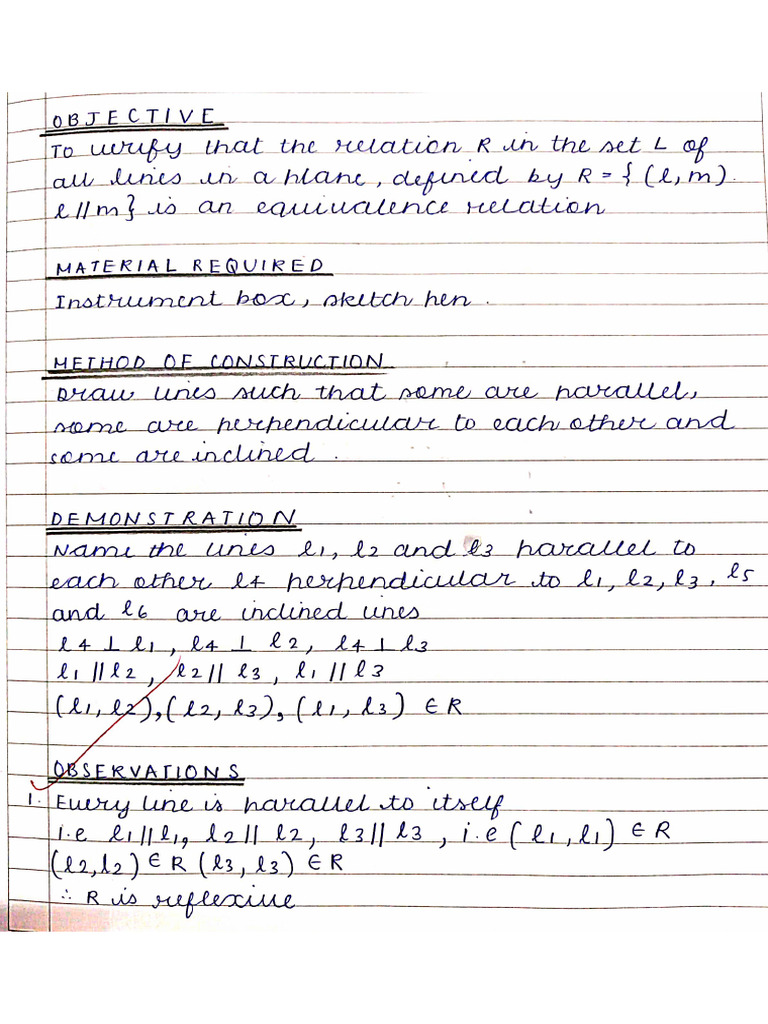 OBJECTIVE
To verify that the relation R in the set L of
all lines in a plane, defined by R = { (l, m).
l // m } is an equivalence relation
MATERIAL REQUIRED
Instrument box, sketch pen.
METHOD OF CONSTRUCTION
Draw lines such that some are parallel,
some are perpendicular to each other and
some are inclined.
DEMONSTRATION
Name the lines l1, l2 and l3 parallel to
each other l4 perpendicular to l1, l2, l3, l5
and l6 are inclined lines
l4 ⊥ l1, l4 ⊥ l2, l4 ⊥ l3
l1 // l2, l2 // l3, l1 // l3
(l1, l2), (l2, l3), (l1, l3) ∈ R
OBSERVATIONS
1. Every line is parallel to itself
i.e l1 // l1, l2 // l2, l3 // l3, i.e (l1, l1) ∈ R
(l2, l2) ∈ R (l3, l3) ∈ R
∴ R is reflexive